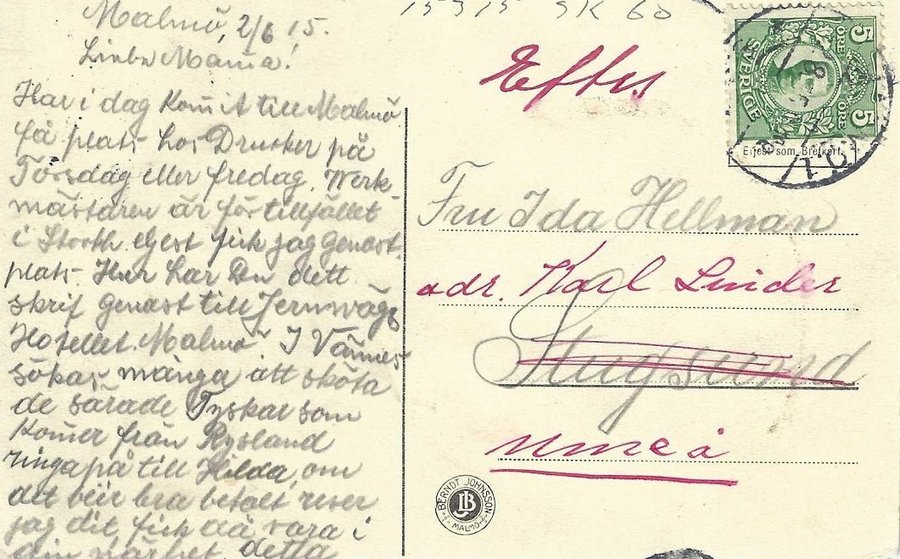 Malmö, 2/6 15.
Liebe Mama!
Har i dag komit till Malmö
få plats hos Drucker på
Torsdag eller fredag. Werk-
mästaren är för tillfället
i Storkh. eljest fick jag Genast
plats. Hur har Du dett
skrif genast till Jernwägs
Hotellet. Malmö I Vännes
sökas många att sköta
de sårade Tyskar som
komer från Rysland
ringa på till Hilda, om
det beir bra betalt reser
jag dit, fick då vara i
din närhet. detta
15315 SK 60
Efters
SVERIGE
5 ÖRE 5 ÖRE
Endast som Brefkort.
Fru Ida Hellman
adr. Karl Linder
Stugsund
Umeå
BERNDT JOHNSSON
JB
MALMÖ